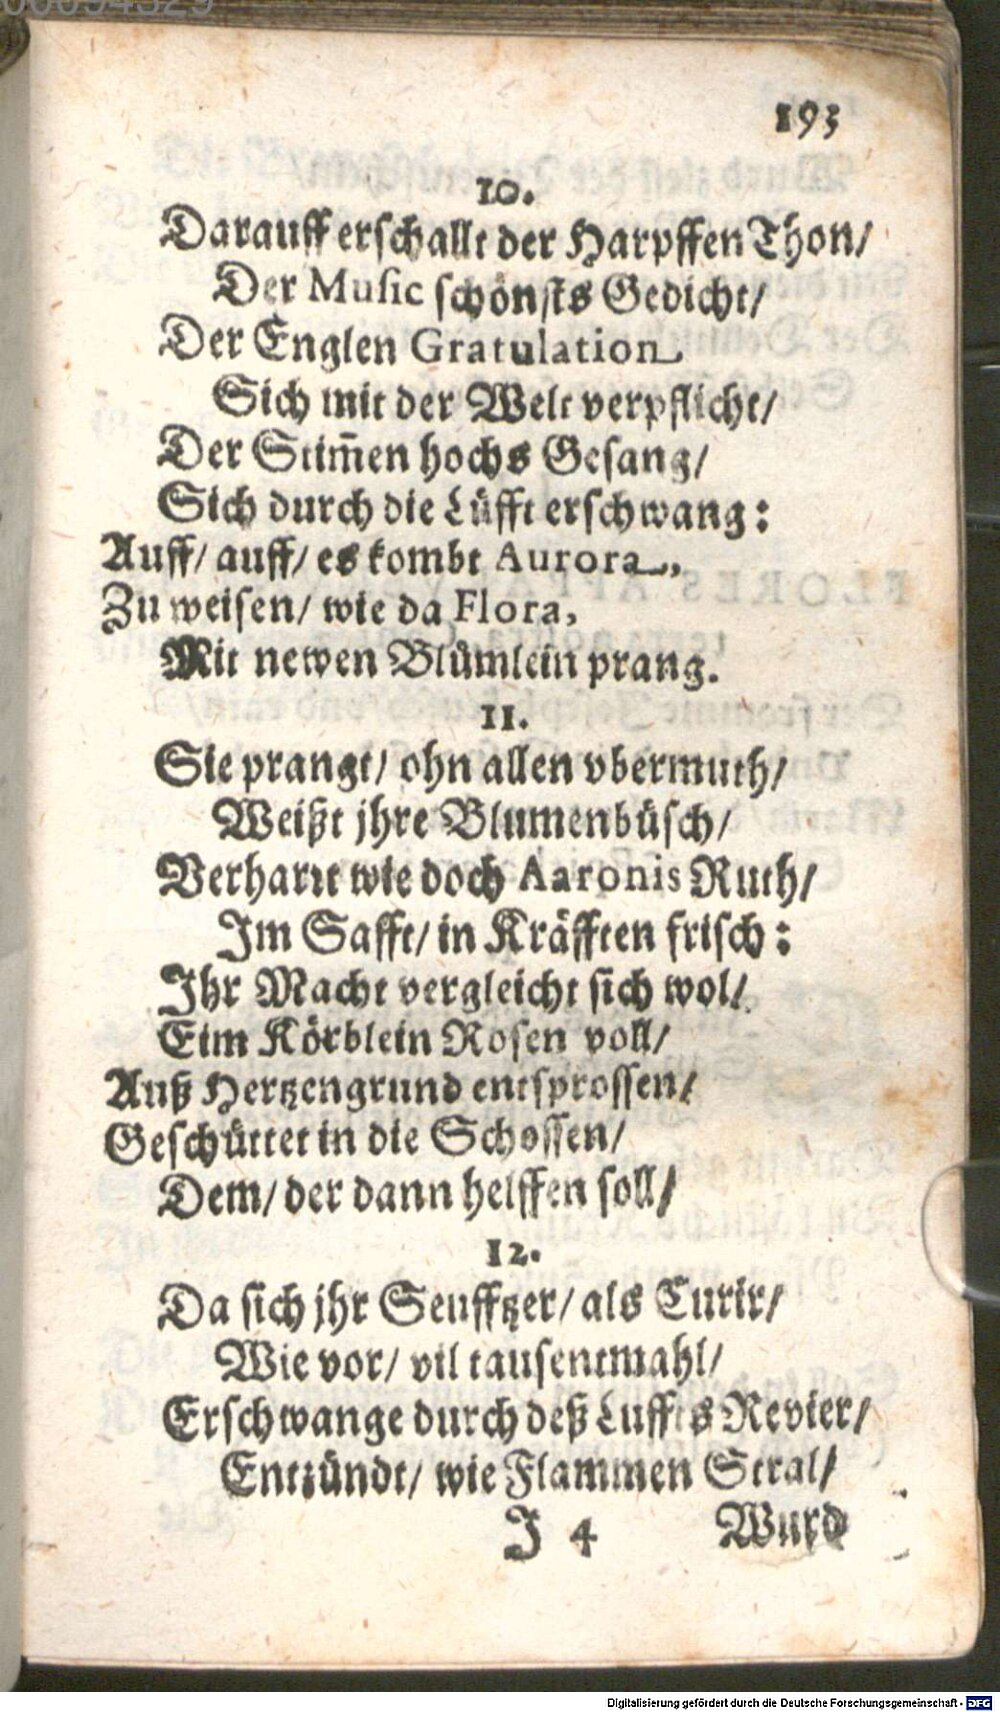 193
10.
Darauff erschallt der Harpffen Thon/
Der Music schönsts Gedicht/
Der Englen Gratulation
Sich mit der Welt verpflicht/
Der Stim̃en hochs Gesang/
Sich durch die Lüfft erschwang:
Auff/ auff/ es kombt Aurora,
Zu weisen/ wie da Flora,
Mit newen Blümlein prang.
11.
Sie prangt/ ohn allen vbermuth/
Weißt jhre Blumenbüsch/
Verharrt wie doch Aaronis Ruth/
Im Safft/ in Kräfften frisch:
Ihr Macht vergleicht sich wol/
Eim Körblein Rosen voll/
Auß Hertzengrund entsprossen/
Geschüttet in die Schossen/
Dem/ der dann helffen soll/
12.
Da sich jhr Seufftzer/ als Curir/
Wie vor/ vil tausentmahl/
Erschwange durch deß Luffts Revier/
Entzündt/ wie Flammen Stral/
J 4 Wurd
Digitalisierung gefördert durch die Deutsche Forschungsgemeinschaft - DFG